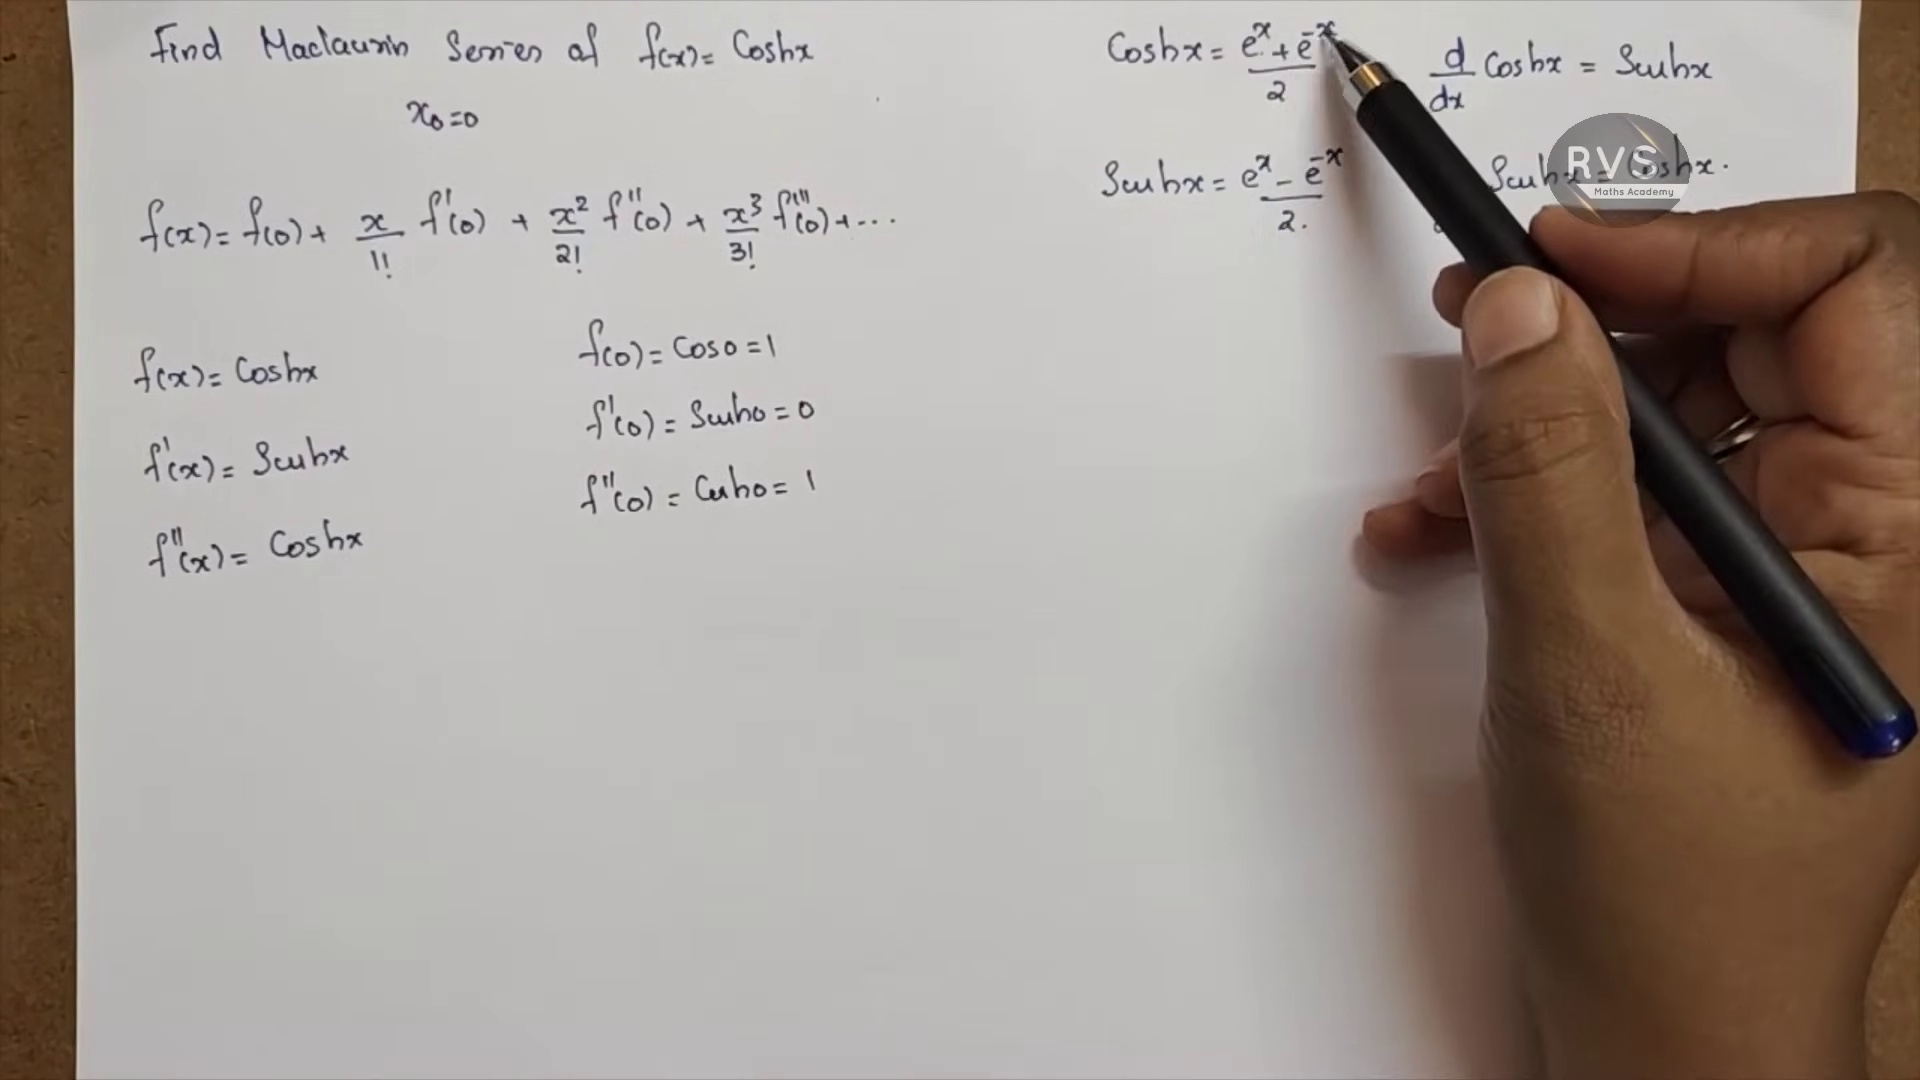 Find Maclaurin Series of f(x) = Coshx
x₀=0
f(x) = f(0) + x/1! f'(0) + x²/2! f''(0) + x³/3! f'''(0) + ...
f(x) = Coshx
f'(x) = Sinhx
f''(x) = Coshx
f(0) = Cos0 = 1
f'(0) = Sinh0 = 0
f''(0) = Cosh0 = 1
Coshx = eˣ + e⁻ˣ / 2
Sinhx = eˣ - e⁻ˣ / 2.
d/dx Coshx = Sinhx
Sinhx = Coshx.
RVS
Maths Academy